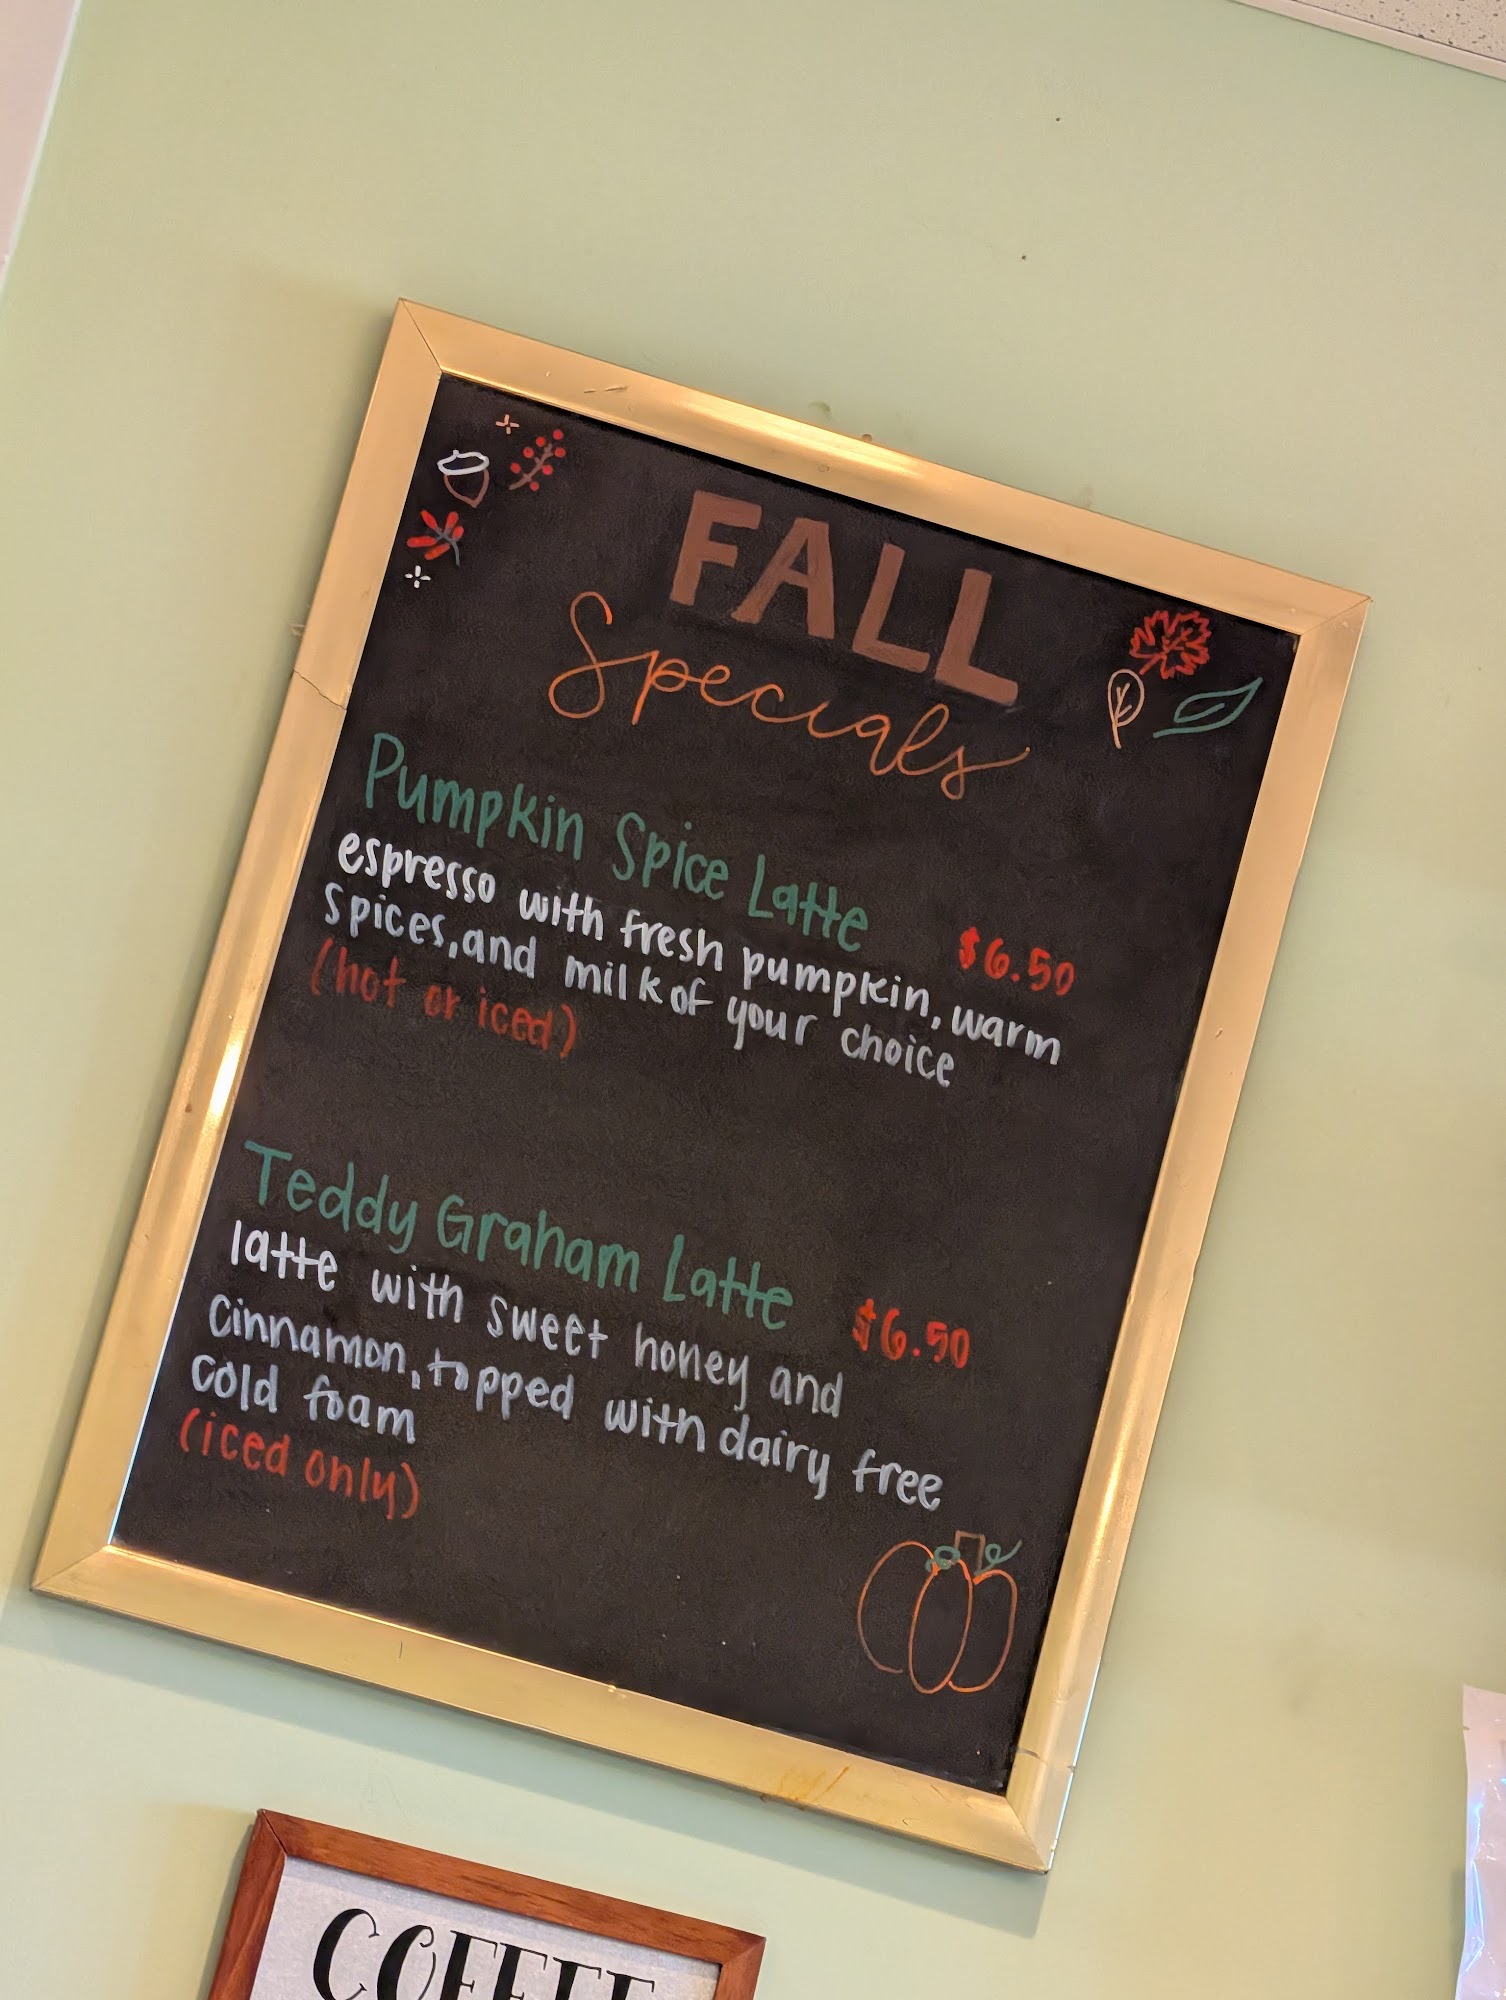 FALL
Specials
Pumpkin Spice Latte $6.50
espresso with fresh pumpkin, warm
spices, and milk of your choice
(hot or iced)
Teddy Graham Latte $6.50
latte with sweet honey and
cinnamon, topped with dairy free
cold foam
(iced only)
COFFEE